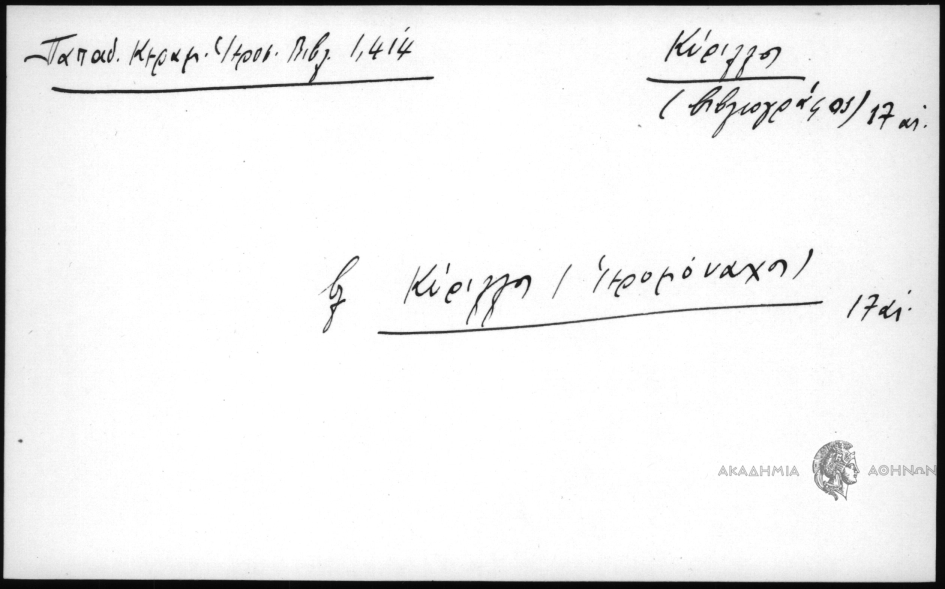 Παπαδ. Κεραμ. Ἱεροσ. Βιβλ. 1,414
Κύριλλος
(βιβλιογράφος) 17 αἰ.
βλ Κύριλλος (Ἱερομόναχος)
17 αἰ.
ΑΚΑΔΗΜΙΑ ΑΘΗΝΩΝ